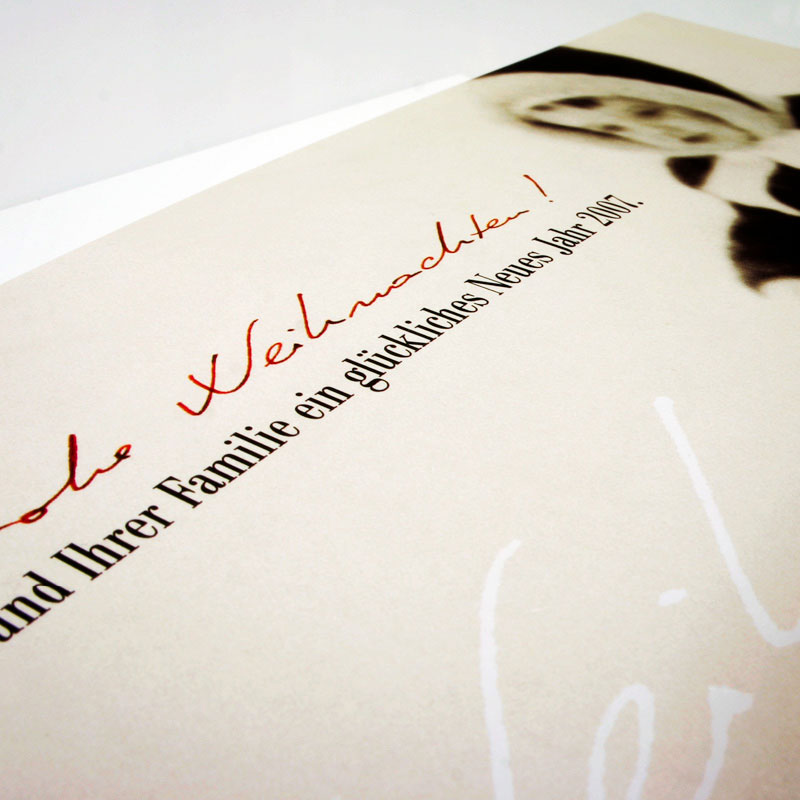 rohe Weihnachten!
und Ihrer Familie ein glückliches Neues Jahr 2007.